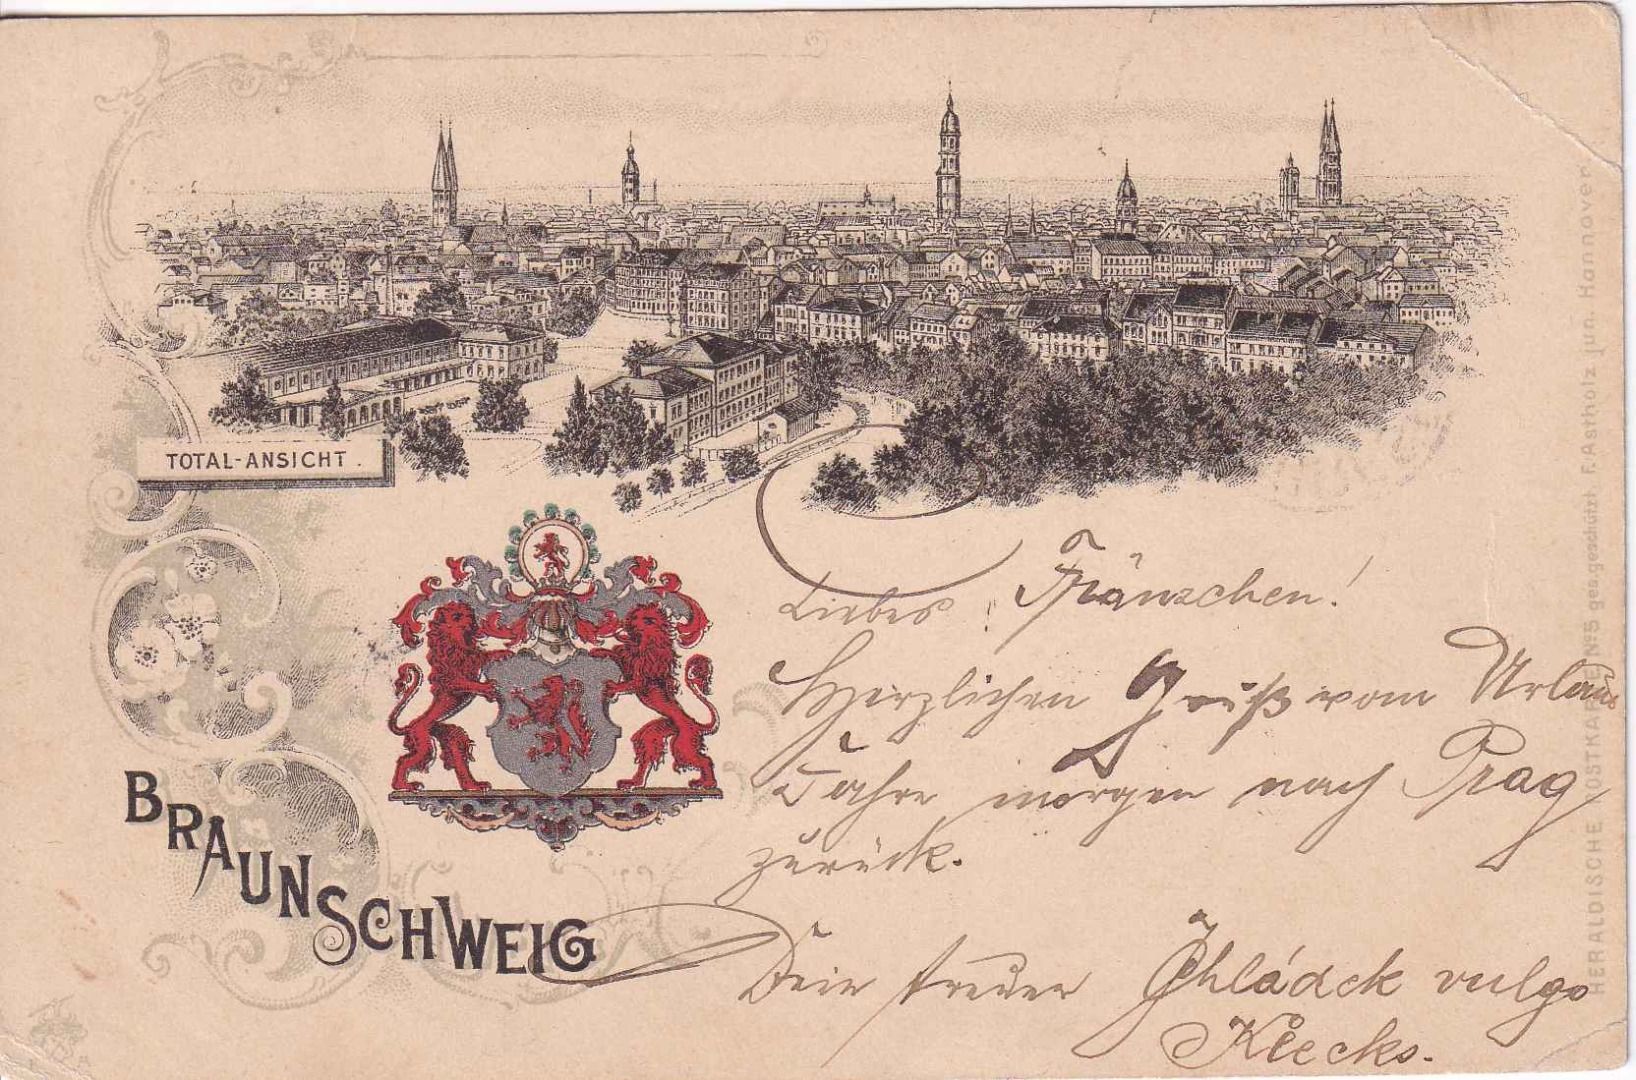 TOTAL-ANSICHT.
BRAUNSCHWEIG
Liebes Fränzchen!
Herzlichen Gruß vom Urlaub
Fahre morgen nach Prag
zurück.
Dein treuer vulgo
Klecks.
HERALDISCHE POSTKARTE No 5 ges geschützt F. Astholz jun. Hannover.